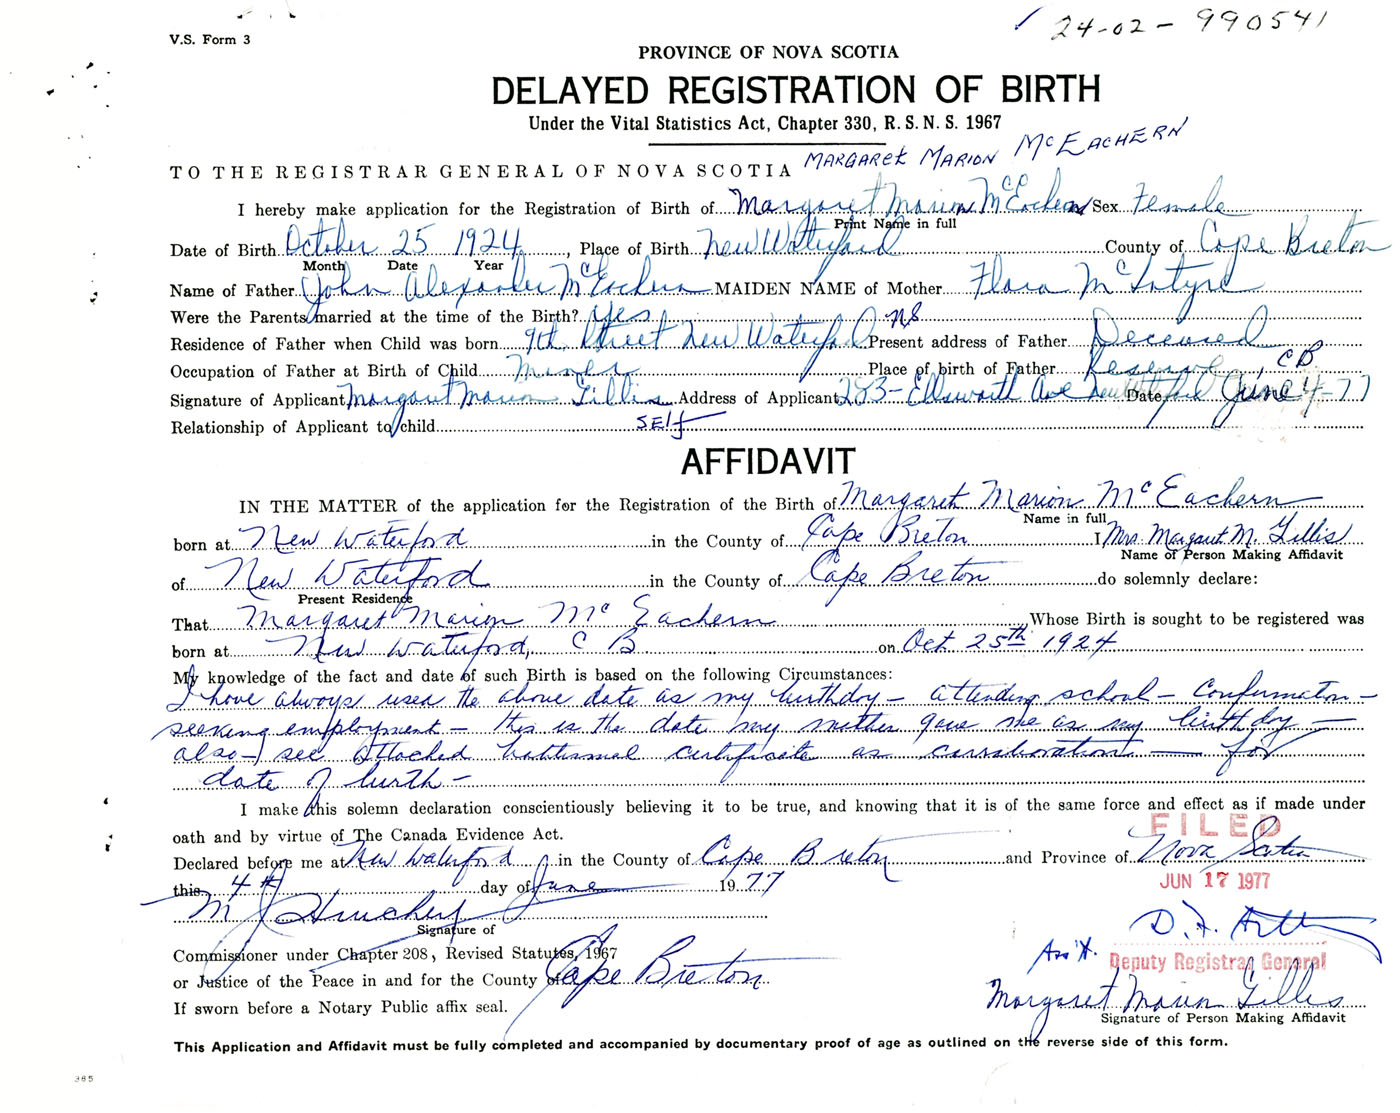 24-02-990541
V.S. Form 3
PROVINCE OF NOVA SCOTIA
DELAYED REGISTRATION OF BIRTH
Under the Vital Statistics Act, Chapter 330, R. S. N. S. 1967
TO THE REGISTRAR GENERAL OF NOVA SCOTIA MARGARET MARION McEACHERN
I hereby make application for the Registration of Birth of Margaret Marion McEachern Sex Female
Print Name in full
Date of Birth October 25 1924, Place of Birth New Waterford County of Cape Breton
Month Date Year
Name of Father John Alexander McEachern MAIDEN NAME of Mother Flora McIntyre
Were the Parents married at the time of the Birth? Yes
Residence of Father when Child was born 9th Street New Waterford NS Present address of Father Deceased
Occupation of Father at Birth of Child Miner Place of birth of Father Reserve, CB
Signature of Applicant Margaret Marion Gillis Address of Applicant 283-Ellsworth Ave New Waterford Date June 4-77
Relationship of Applicant to child SElf
AFFIDAVIT
IN THE MATTER of the application for the Registration of the Birth of Margaret Marion McEachern
Name in full
born at New Waterford in the County of Cape Breton I Mrs. Margaret M. Gillis
Name of Person Making Affidavit
of New Waterford in the County of Cape Breton do solemnly declare:
Present Residence
That Margaret Marion McEachern Whose Birth is sought to be registered was
born at New Waterford, C B on Oct 25th 1924
My knowledge of the fact and date of such Birth is based on the following Circumstances:
I have always used the above date as my birthday - attending school - Confirmation -
seeking employment - this is the date my mother gave me as my birthday -
also - see attached baptismal certificate as corroboration - for
date of birth -
I make this solemn declaration conscientiously believing it to be true, and knowing that it is of the same force and effect as if made under
oath and by virtue of The Canada Evidence Act.
FILED
Declared before me at New Waterford in the County of Cape Breton and Province of Nova Scotia
JUN 17 1977
this 4th day of June 1977
M J
Signature of
Commissioner under Chapter 208, Revised Statutes, 1967
Deputy Registrar General
or Justice of the Peace in and for the County of Cape Breton
Margaret Marion Gillis
If sworn before a Notary Public affix seal.
Signature of Person Making Affidavit
This Application and Affidavit must be fully completed and accompanied by documentary proof of age as outlined on the reverse side of this form.
385